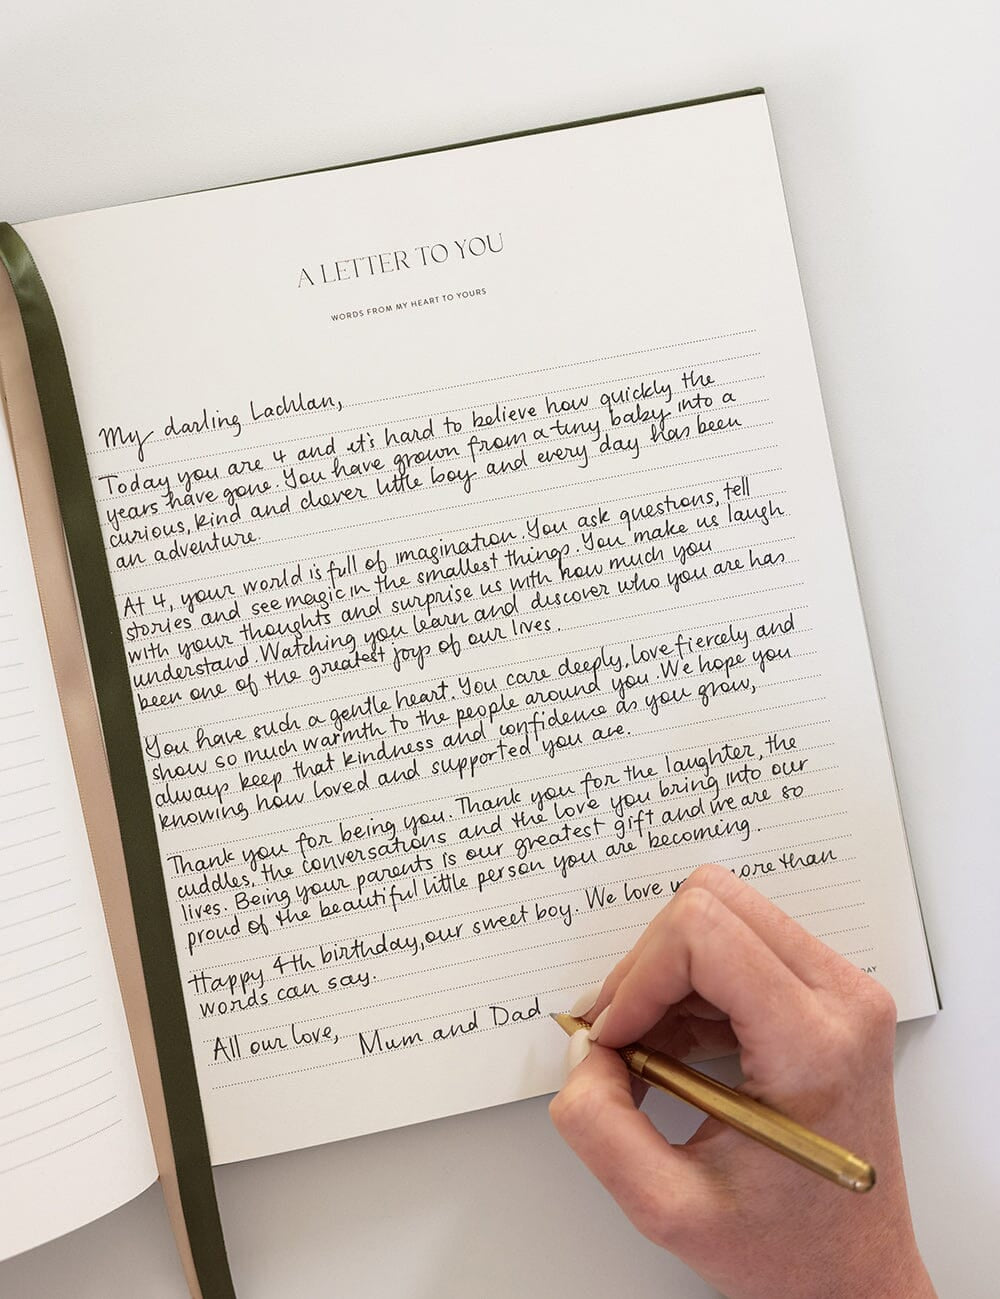 A LETTER TO YOU
WORDS FROM MY HEART TO YOURS
My darling Lachlan,
Today you are 4 and it's hard to believe how quickly the
years have gone. You have grown from a tiny baby into a
curious, kind and clever little boy and every day has been
an adventure.
At 4, your world is full of imagination. You ask questions, tell
stories and see magic in the smallest things. You make us laugh
with your thoughts and surprise us with how much you
understand. Watching you learn and discover who you are has
been one of the greatest joys of our lives.
You have such a gentle heart. You care deeply, love fiercely and
show so much warmth to the people around you. We hope you
always keep that kindness and confidence as you grow,
knowing how loved and supported you are.
Thank you for being you. Thank you for the laughter, the
cuddles, the conversations and the love you bring into our
lives. Being your parents is our greatest gift and we are so
proud of the beautiful little person you are becoming.
Happy 4th birthday, our sweet boy. We love more than
words can say.
All our love,
Mum and Dad
DAY